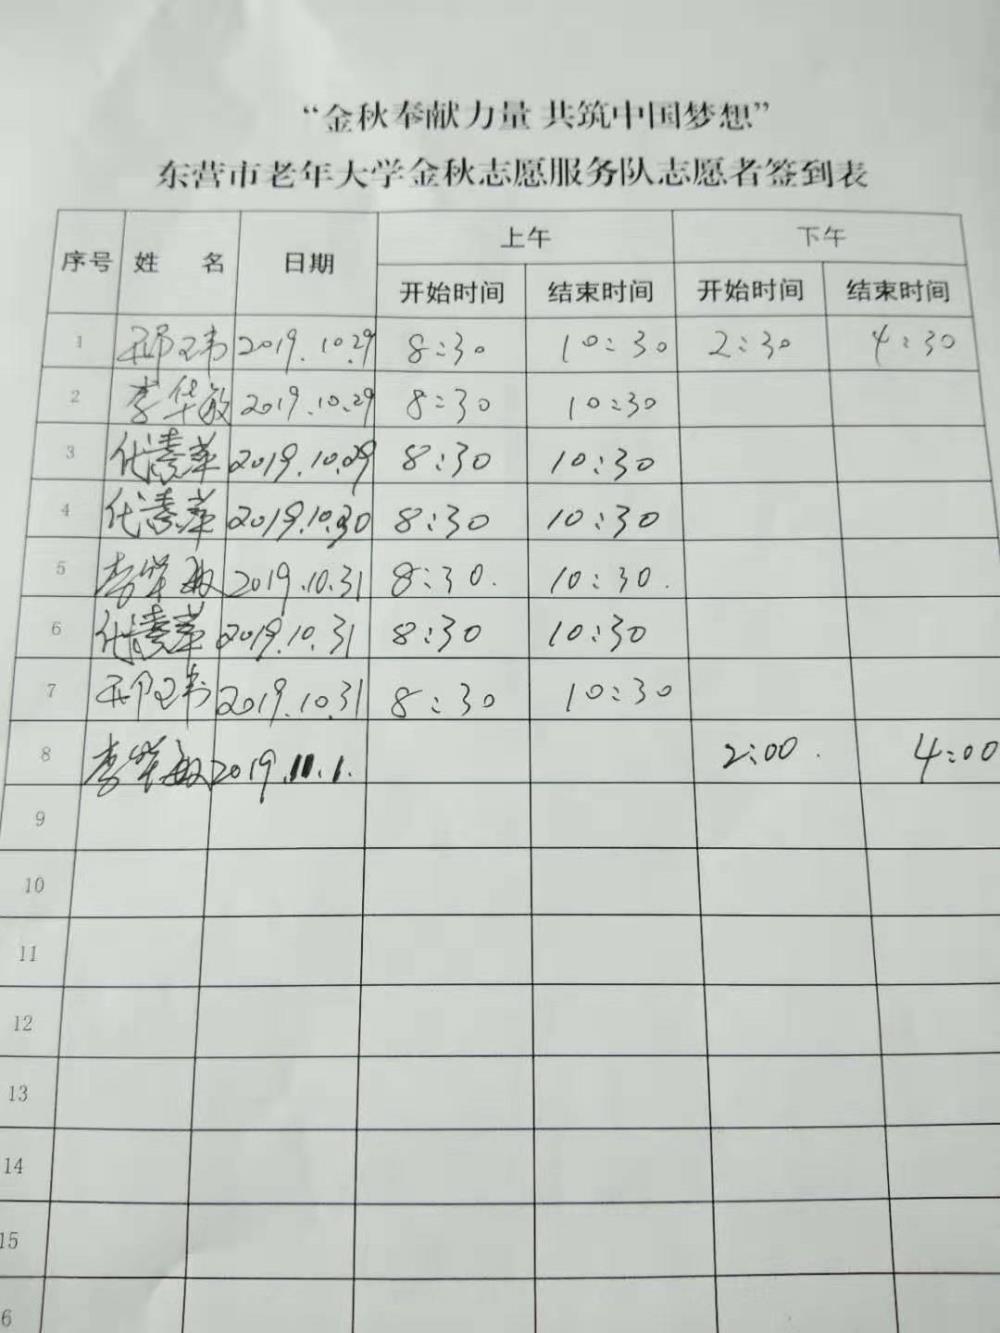 “金秋奉献力量 共筑中国梦想”
东营市老年大学金秋志愿服务队志愿者签到表
序号 姓 名 日期 上午 下午
开始时间 结束时间 开始时间 结束时间
1 2019.10.29 8:30 10:30 2:30 4:30
2 李华敏 2019.10.29 8:30 10:30
3 代清萍 2019.10.29 8:30 10:30
4 代清萍 2019.10.30 8:30 10:30
5 李华敏 2019.10.31 8:30. 10:30.
6 代清萍 2019.10.31 8:30 10:30
7 2019.10.31 8:30 10:30
8 李华敏 2019.11.1. 2:00. 4:00
9
10
11
12
13
14
15
6